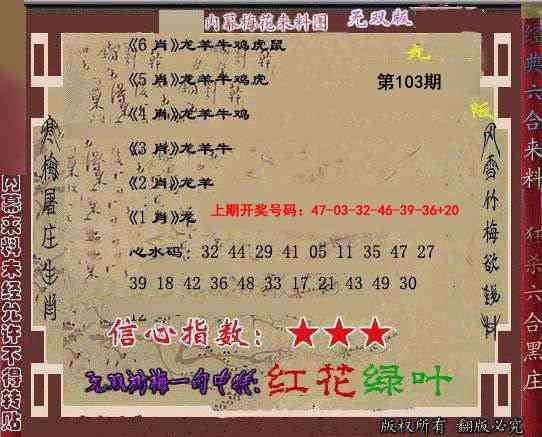 内幕梅花来料图 无双版
《6 肖》龙羊牛鸡虎鼠
《5 肖》龙羊牛鸡虎
第103期
《4 肖》龙羊牛鸡
《3 肖》龙羊牛
《2 肖》龙羊
《1 肖》龙
上期开奖号码：47-03-32-46-39-36+20
心水码：32 44 29 41 05 11 35 47 27
39 18 42 36 48 33 17 21 43 49 30
12
信心指数：★★★
红花绿叶
寒梅屠庄生肖
风雪竹梅欲
内幕来料未经允许不得转贴
经典六合来料 狂杀六合黑庄
版权所有 翻版必究